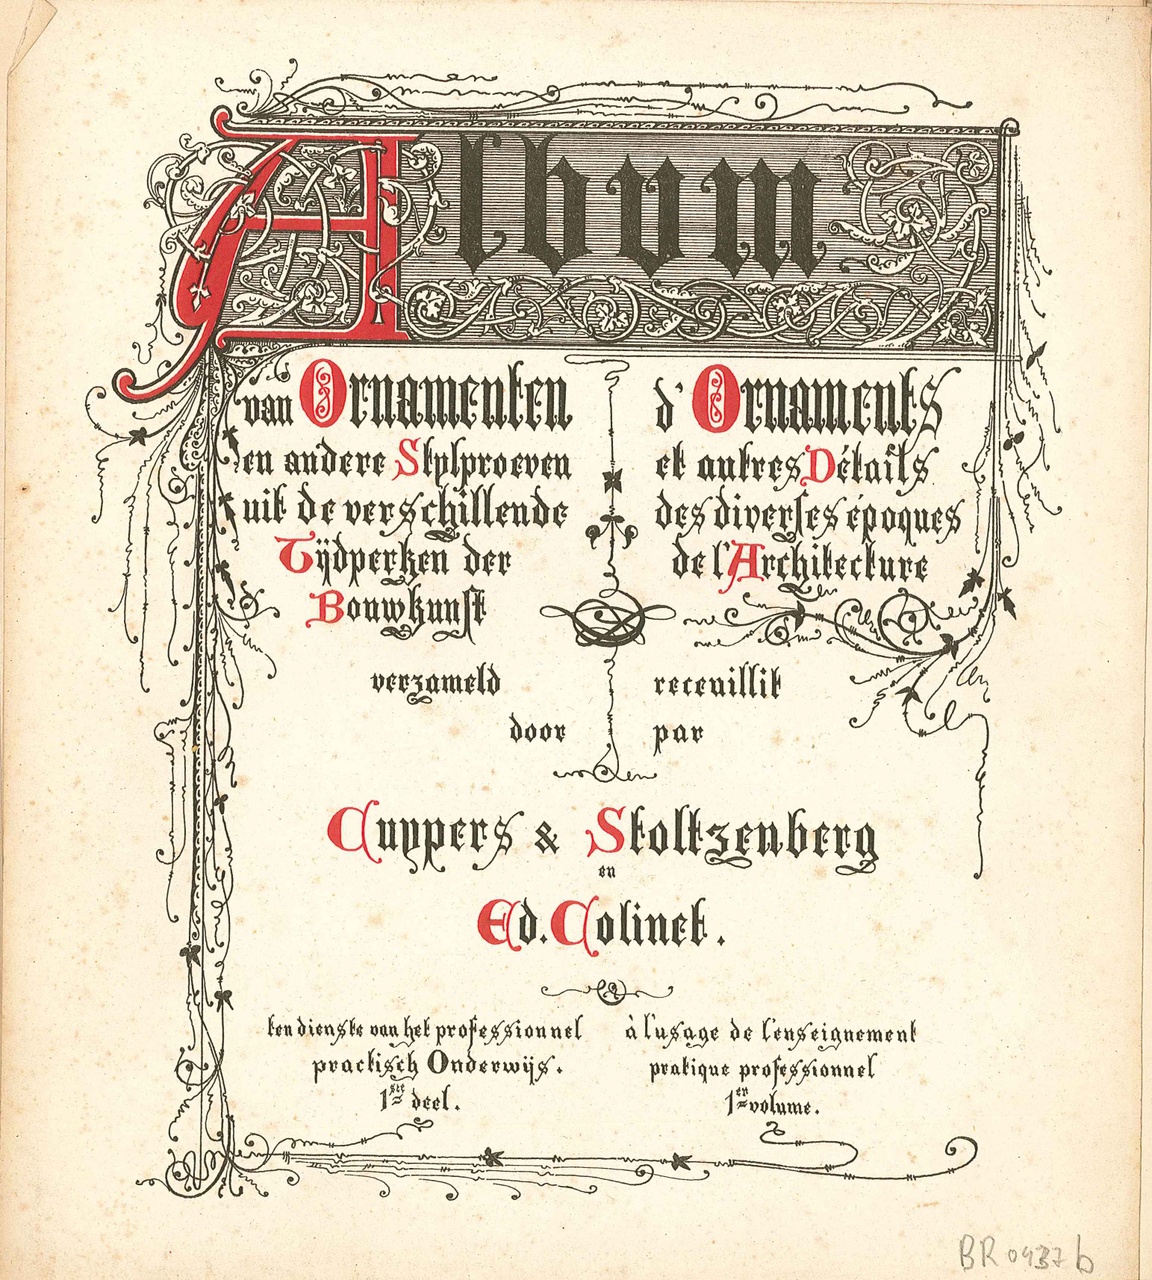 Album
van Ornamenten
en andere Stylproeven
uit de verschillende
Tijdperken der
Bouwkunst
verzameld
door
d'Ornaments
et autres Détails
des diverses époques
de l'Architecture
receuillit
par
Cuypers & Stoltzenberg
en
Ed. Colinet.
ten dienste van het professionnel
practisch Onderwijs.
1ste deel.
à l'usage de l'enseignement
pratique professionnel
1er volume.
BR 0437 b